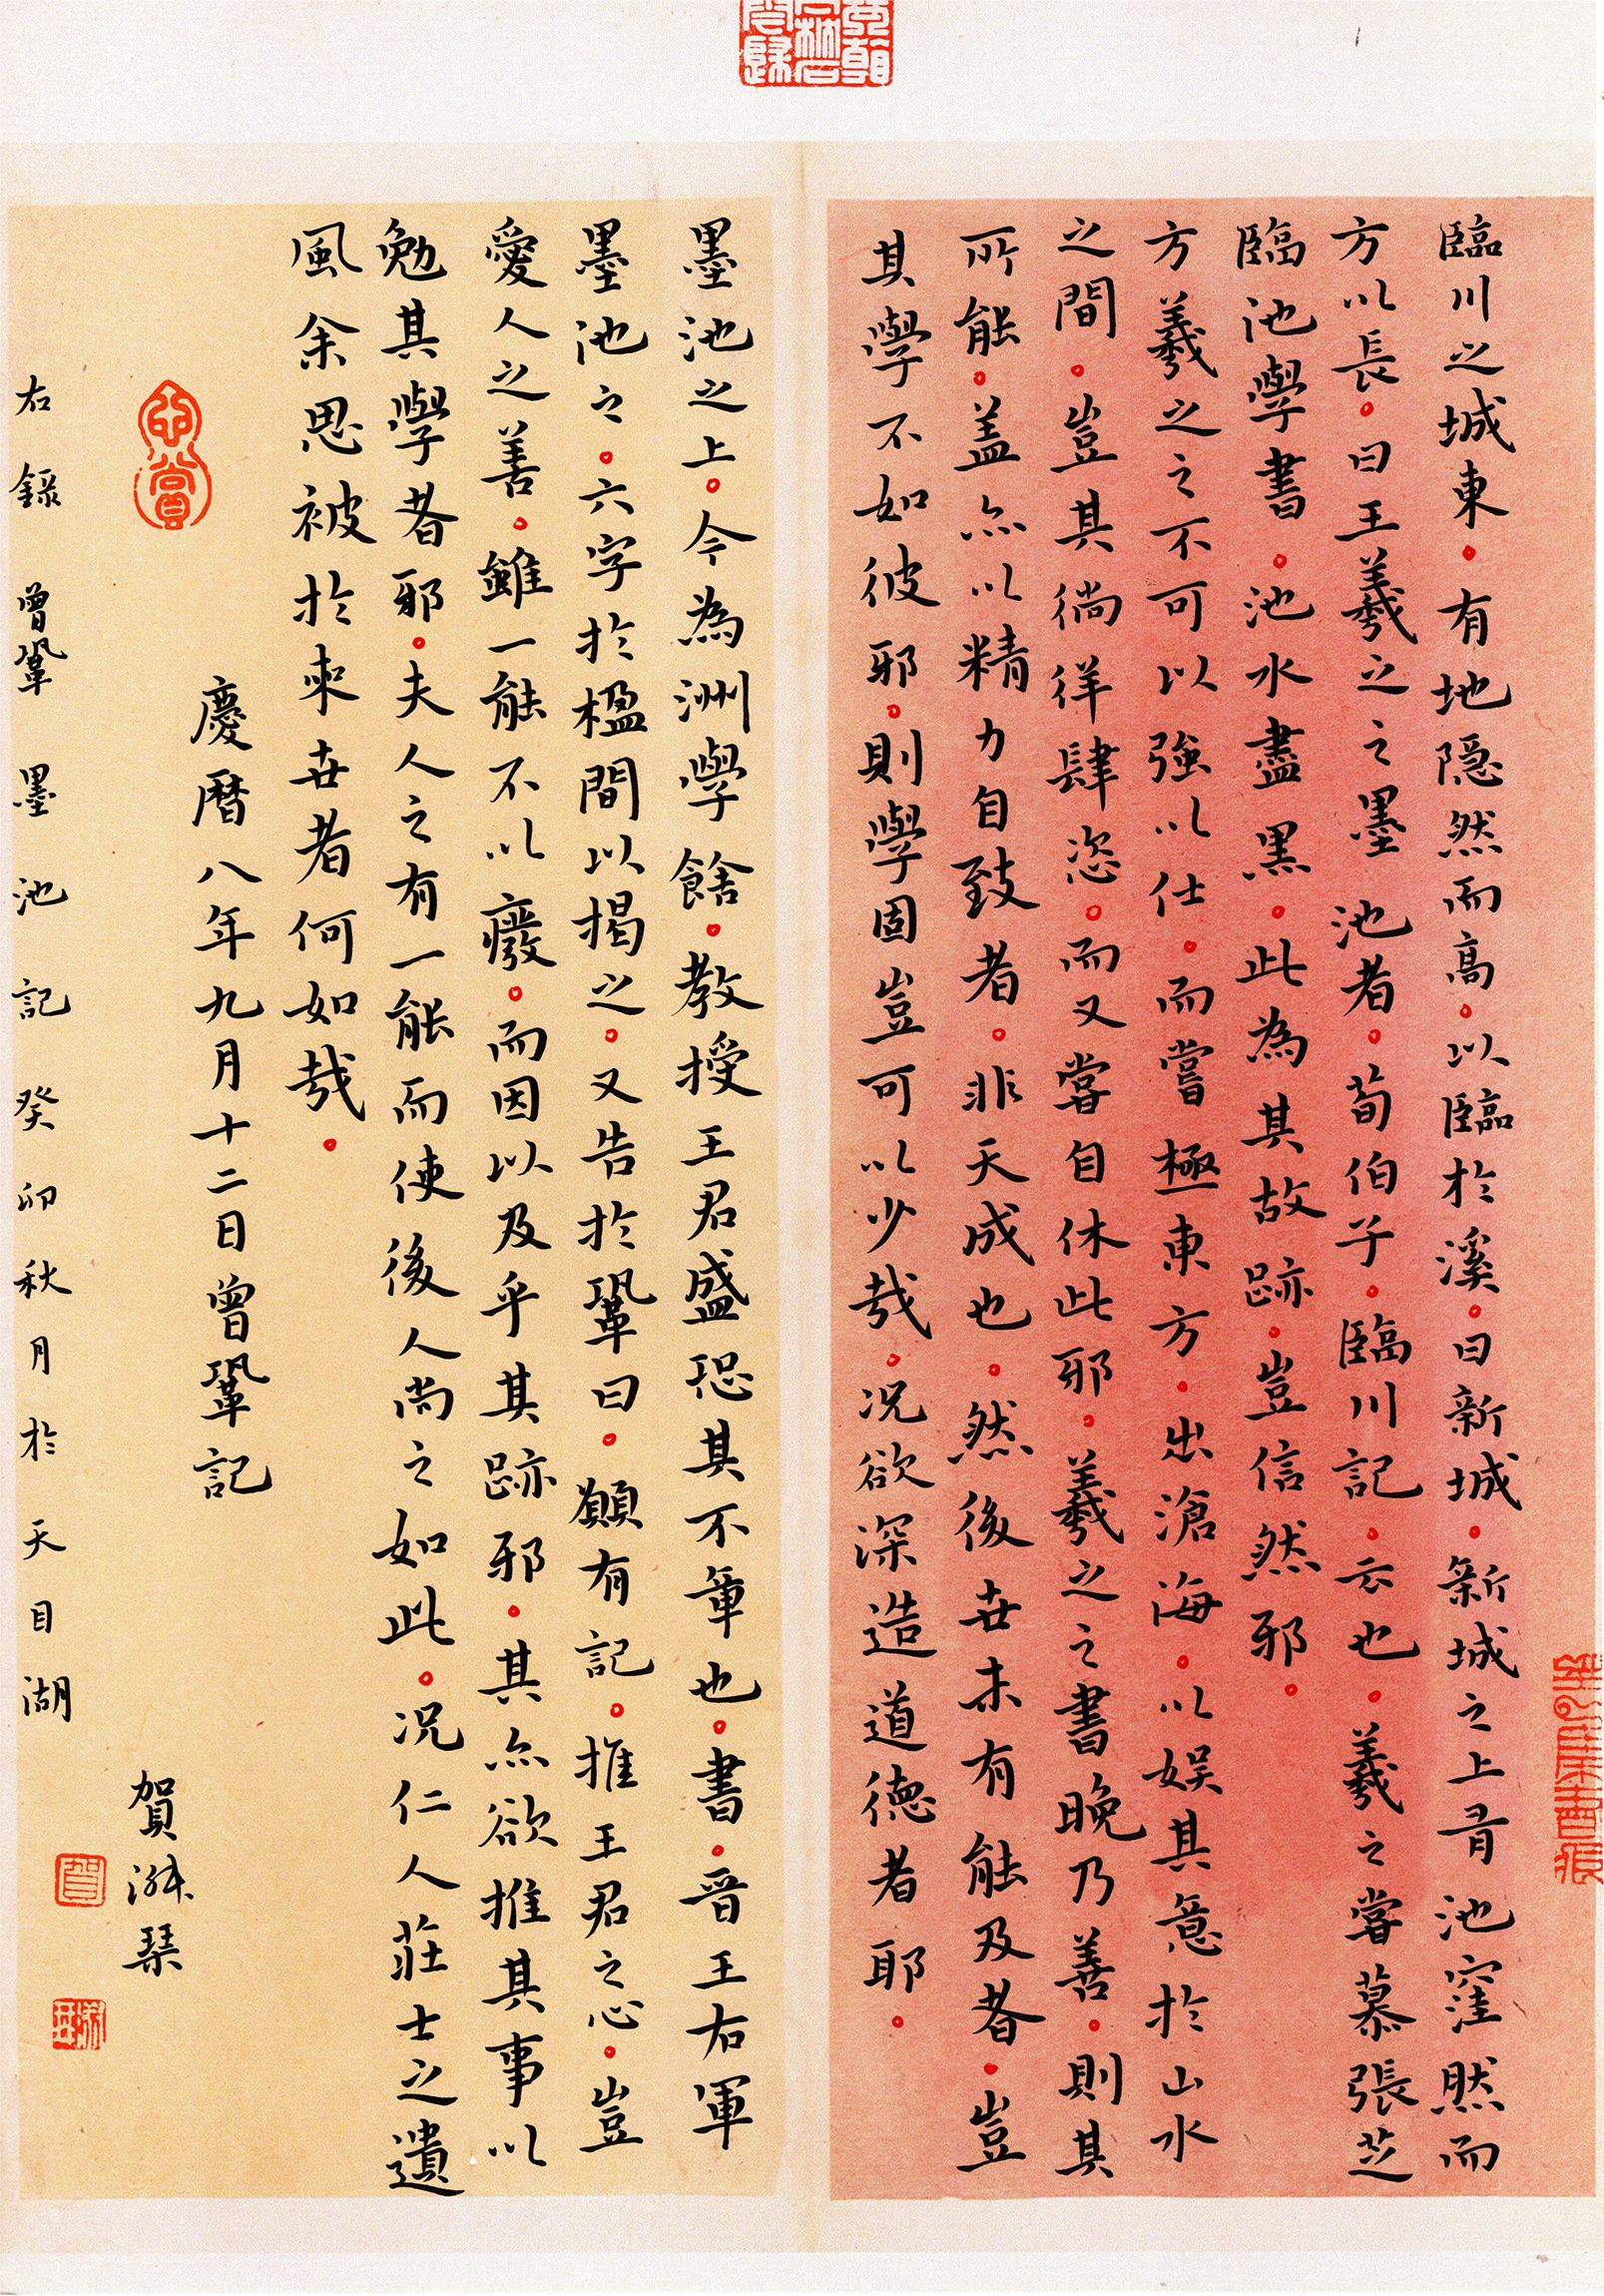 臨川之城東。有地隱然而高。以臨於溪。曰新城。新城之上有池窪然而
方以長。曰王羲之之墨池者。荀伯子。臨川記。云也。羲之嘗慕張芝
臨池學書。池水盡黑。此為其故跡。豈信然邪。
方羲之之不可以強以仕。而嘗極東方。出滄海。以娛其意於山水
之間。豈其徜徉肆恣。而又嘗自休此邪。羲之之書晚乃善。則其
所能。蓋亦以精力自致者。非天成也。然後世未有能及者。豈
其學不如彼邪。則學固豈可以少哉。况欲深造道德者耶。
墨池之上。今為洲學館。教授王君盛恐其不章也。書。晉王右軍
墨池之。六字於楹間以揭之。又告於鞏曰。願有記。推王君之心。豈
愛人之善。雖一能不以廢。而因以及乎其跡邪。其亦欲推其事以
勉其學者邪。夫人之有一能而使後人尚之如此。况仁人莊士之遺
風余思被於來世者何如哉。
慶曆八年九月十二日曾鞏記
右錄曾鞏墨池記癸卯秋月於天目湖
賀
琹